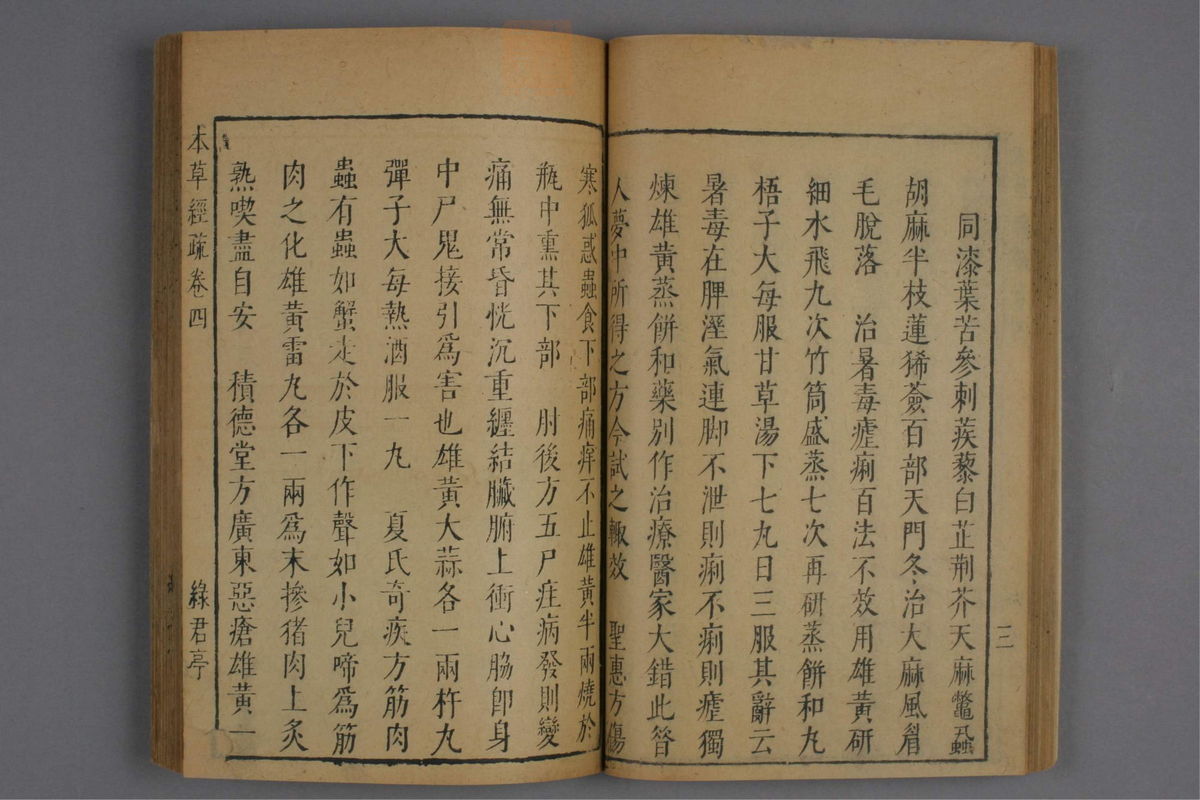 三
同漆葉苦參刺蒺藜白芷荆芥天麻鱉虱
胡麻半枝蓮豨薟百部天門冬治大麻風眉
毛脫落　治暑毒瘧痢百法不效用雄黃研
細水飛九次竹筒盛蒸七次再研蒸餅和丸
梧子大每服甘草湯下七丸日三服其辭云
暑毒在脾溼氣連脚不泄則痢不痢則瘧獨
煉雄黃蒸餅和藥別作治療醫家大錯此昝
人夢中所得之方今試之輙效　聖惠方傷
寒狐惑蟲食下部痛痒不止雄黃半兩燒於
瓶中熏其下部　肘後方五尸疰病發則變
痛無常昏恍沉重纒結臟腑上衝心脇卽身
中尸鬼接引爲害也雄黃大蒜各一兩杵丸
彈子大每熱酒服一丸　夏氏奇疾方筋肉
蟲有蟲如蟹走於皮下作聲如小兒啼爲筋
肉之化雄黃雷丸各一兩爲末摻猪肉上炙
熟喫盡自安　積德堂方廣東惡瘡雄黃一
本草經疏卷四
綠君亭